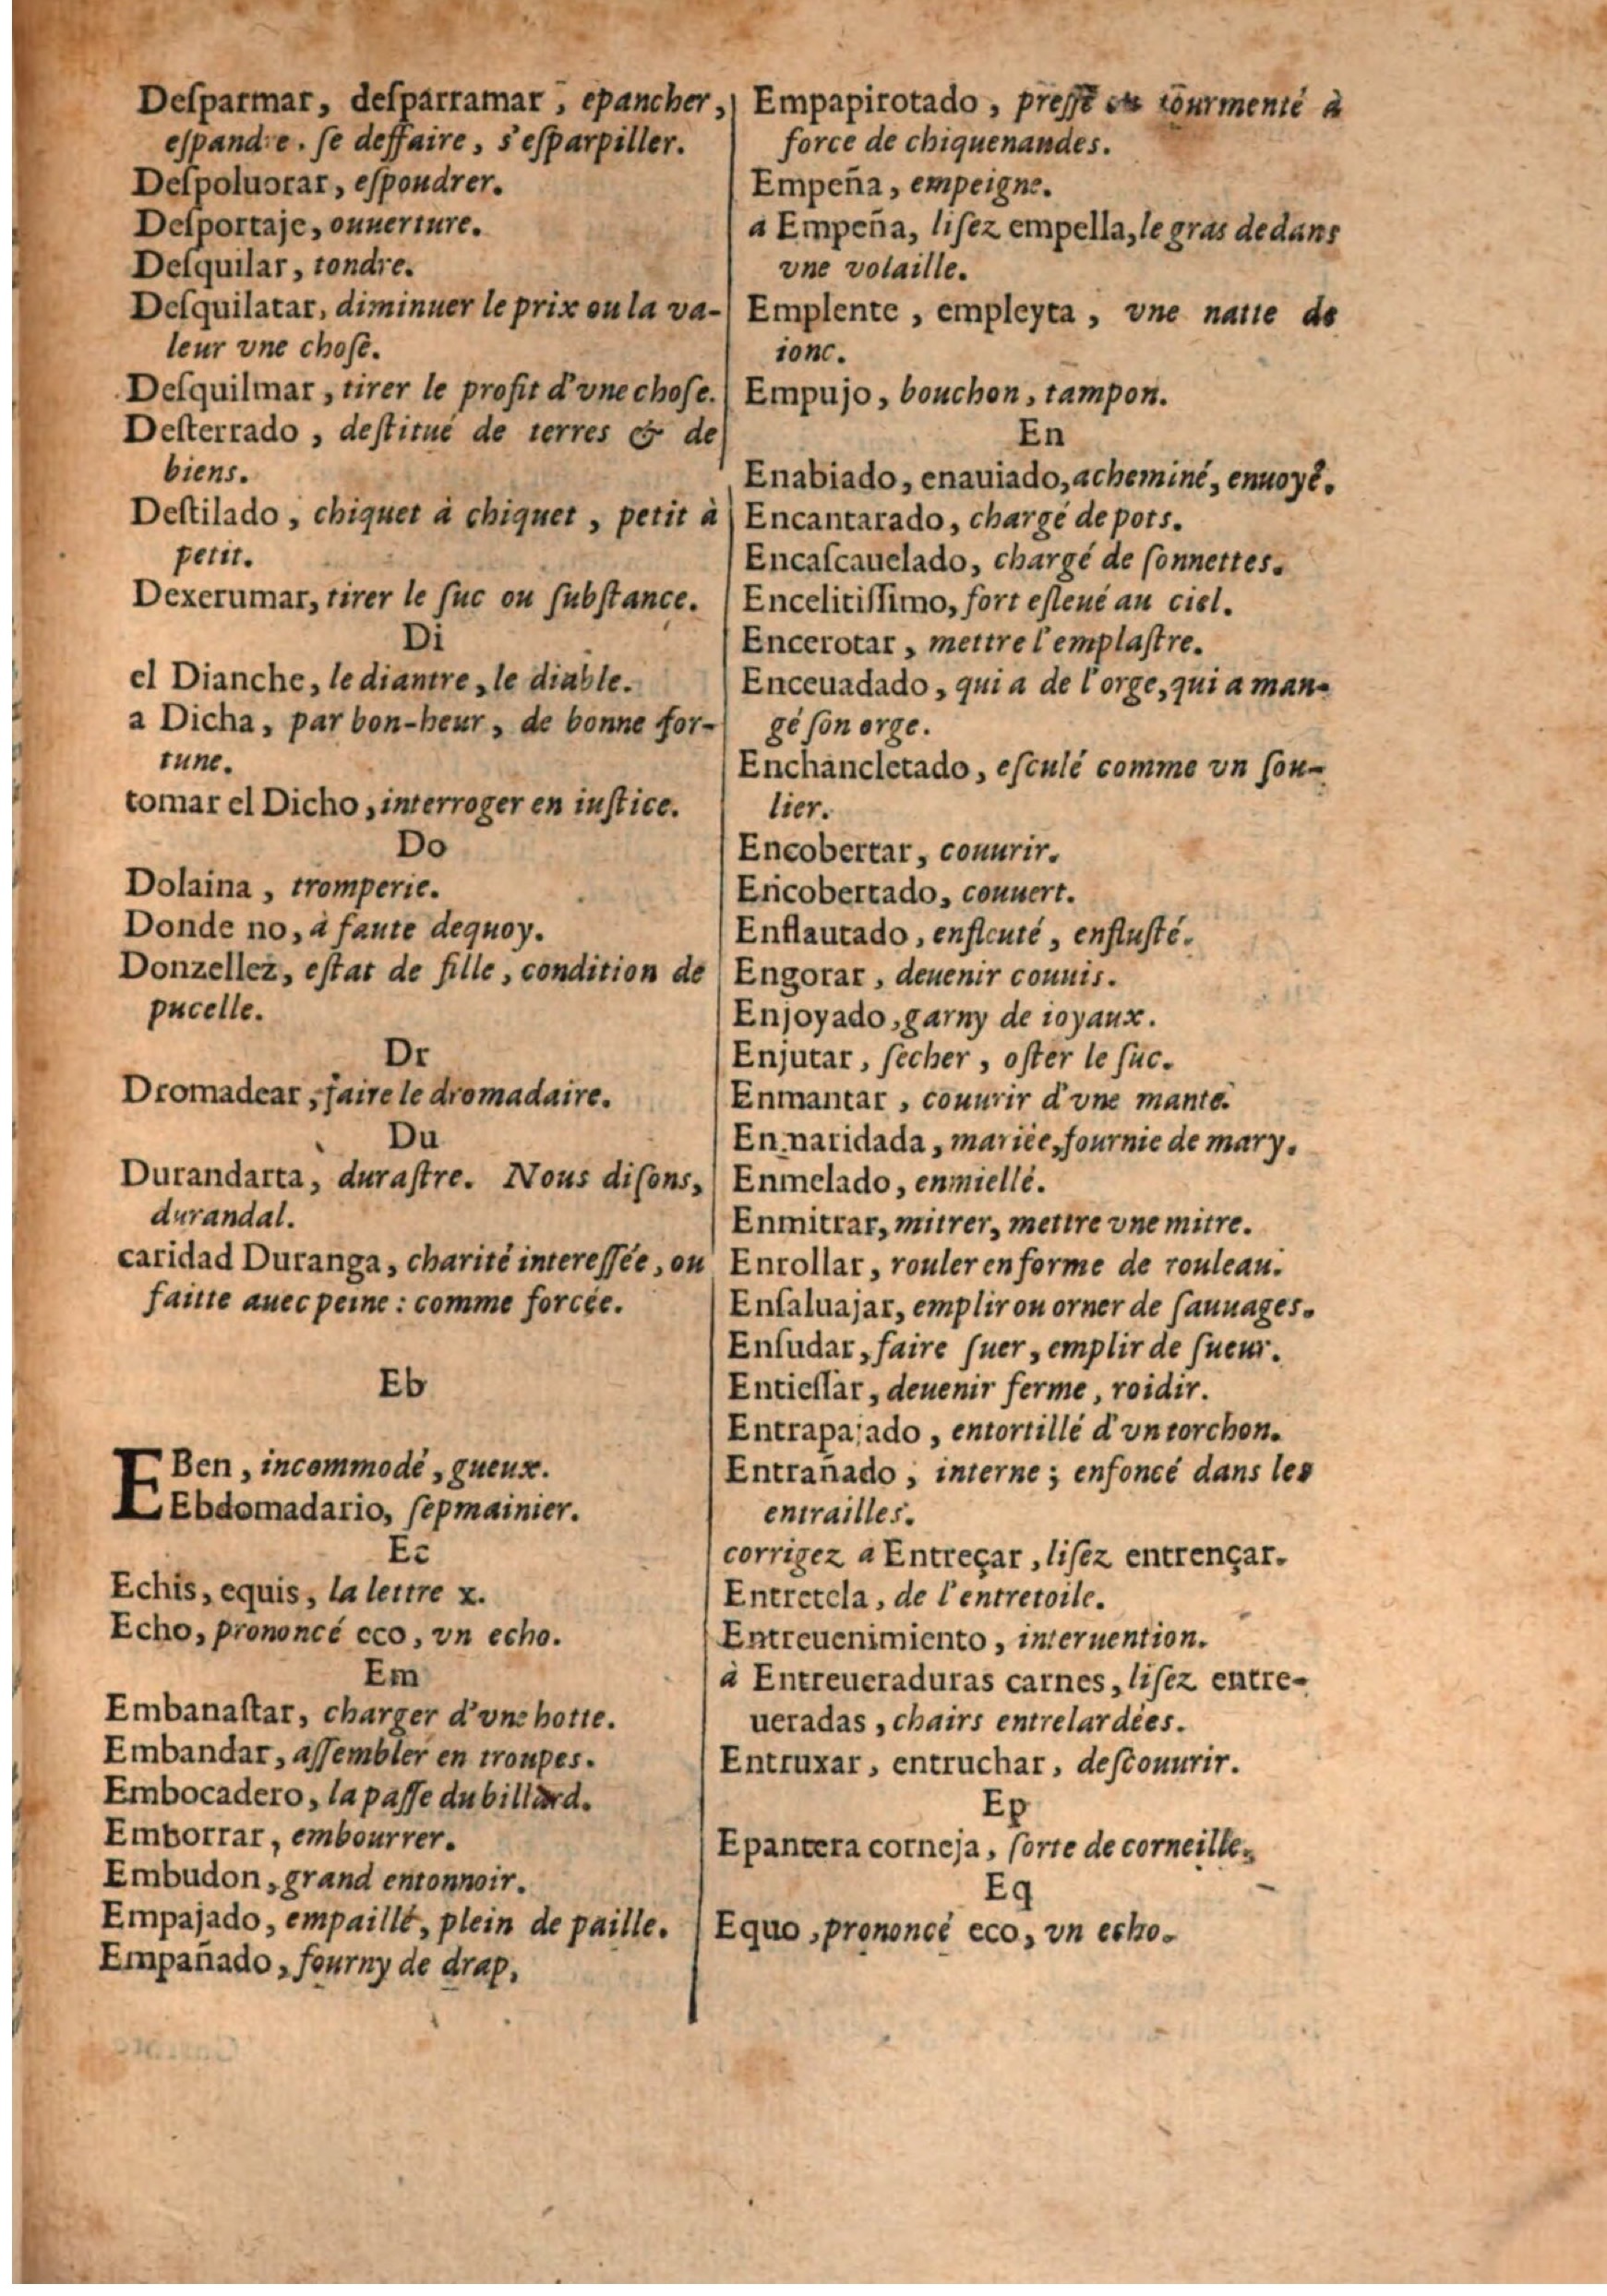 Deſparmar, deſparramar, epancher,
eſpandre. ſe deffaire, s'eſparpiller.
Deſpoluorar, eſpoudrer.
Deſportaje, ouuerture.
Deſquilar, tondre.
Deſquilatar, diminuer le prix ou la va-
leur vne choſe.
Deſquilmar, tirer le profit d'vne choſe.
Deſterrado, deſtitué de terres & de
biens.
Deſtilado, chiquet à chiquet, petit à
petit.
Dexerumar, tirer le ſuc ou ſubſtance.
Di
el Dianche, le diantre, le diable.
a Dicha, par bon-heur, de bonne for-
tune.
tomar el Dicho, interroger en iuſtice.
Do
Dolaina, tromperie.
Donde no, à faute dequoy.
Donzellez, eſtat de fille, condition de
pucelle.
Dr
Dromadear, faire le dromadaire.
Du
Durandarta, duraſtre. Nous diſons,
durandal.
caridad Duranga, charité intereſſée, ou
faitte auec peine : comme forcée.
Eb
EBen, incommodé, gueux.
Ebdomadario, ſepmainier.
Ec
Echis, equis, la lettre x.
Echo, prononcé eco, vn echo.
Em
Embanaſtar, charger d'vne hotte.
Embandar, aſſembler en troupes.
Embocadero, la paſſe du billard.
Emborrar, embourrer.
Embudon, grand entonnoir.
Empajado, empaillé, plein de paille.
Empañado, fourny de drap,
Empapirotado, preſſé ou tourmenté à
force de chiquenandes.
Empeña, empeigne.
a Empeña, liſez empella, le gras dedans
vne volaille.
Emplente, empleyta, vne natte de
ionc.
Empujo, bouchon, tampon.
En
Enabiado, enauiado, acheminé, enuoyé.
Encantarado, chargé de pots.
Encaſcauelado, chargé de ſonnettes.
Encelitiſſimo, fort eſleué au ciel.
Encerotar, mettre l'emplaſtre.
Enceuadado, qui a de l'orge, qui a man-
gé ſon orge.
Enchancletado, eſculé comme vn ſou-
lier.
Encobertar, couurir.
Encobertado, couuert.
Enflautado, enfleuté, enfluſté.
Engorar, deuenir couuis.
Enjoyado, garny de ioyaux.
Enjutar, ſecher, oſter le ſuc.
Enmantar, couurir d'vne mante.
Enmaridada, mariée, fournie de mary.
Enmelado, enmiellé.
Enmitrar, mitrer, mettre vne mitre.
Enrollar, rouler en forme de rouleau.
Enſaluajar, emplir ou orner de ſauuages.
Enſudar, faire ſuer, emplir de ſueur.
Entieſſar, deuenir ferme, roidir.
Entrapajado, entortillé d'vn torchon.
Entrañado, interne ; enfoncé dans les
entrailles.
corrigez a Entreçar, liſez entrençar.
Entretela, de l'entretoile.
Entreuenimiento, interuention.
à Entreueraduras carnes, liſez entre-
ueradas, chairs entrelardées.
Entruxar, entruchar, deſcouurir.
Ep
Epantera corneja, ſorte de corneille.
Eq
Equo, prononcé eco, vn echo.